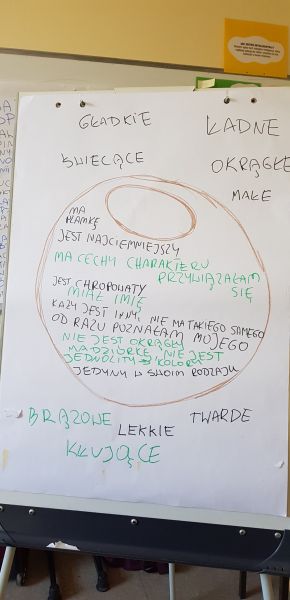 GŁADKIE
ŁADNE
ŚWIECĄCE
OKRĄGŁE
MAŁE
MA
PLAMKĘ
JEST NAJCIEMNIEJSZY
MA CECHY CHARAKTERU
PRZYWIĄZAŁAM
SIĘ
JEST CHROPOWATY
MIAŁ IMIĘ
KAŻY JEST INNY, NIE MA TAKIEGO SAMEGO
OD RAZU POZNAŁAM MOJEGO
NIE JEST OKRĄGŁY
MA DZIURKĘ, NIE JEST
JEDNOLITY W KOLORZE
JEDYNY W SWOIM RODZAJU
BRĄZOWE
LEKKIE
TWARDE
KŁUJĄCE